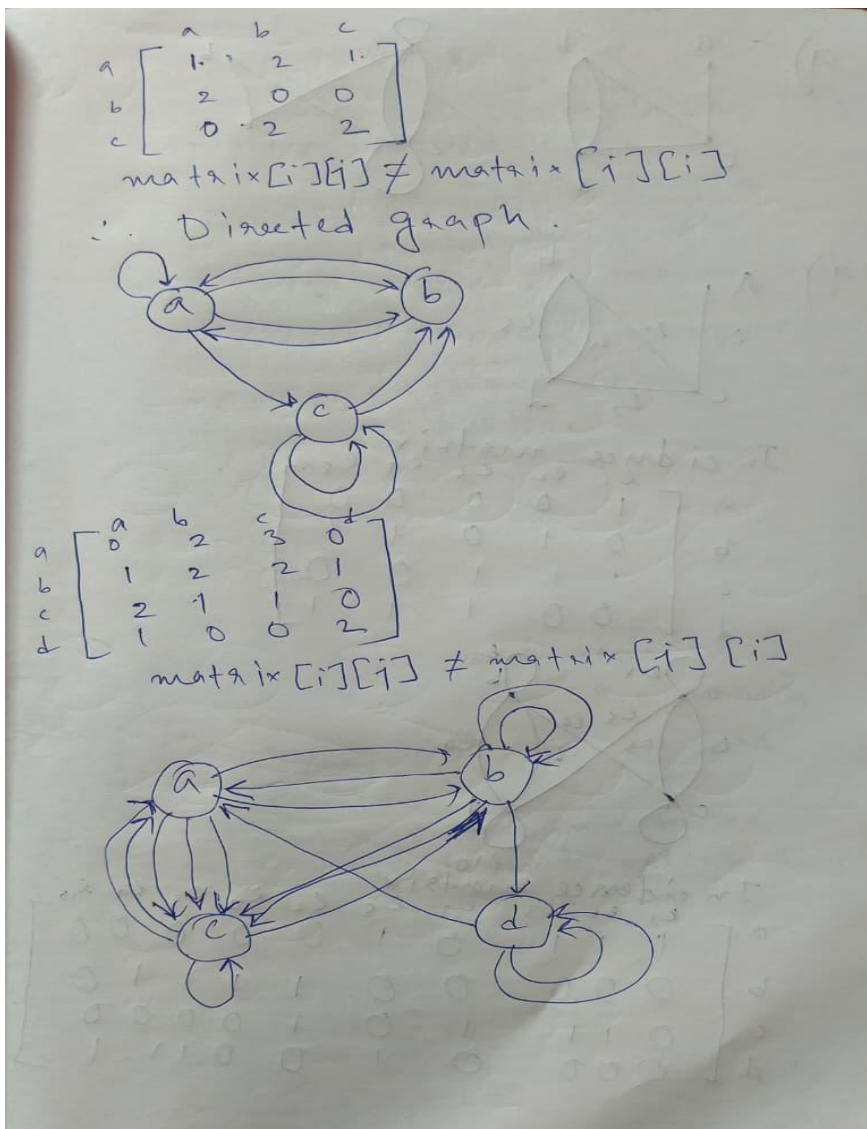 a b c
a 1 2 1
b 2 0 0
c 0 2 2
matrix[i][j] ≠ matrix[j][i]
∴ Directed graph.
a b
c
a b c d
a 0 2 3 0
b 1 2 2 1
c 2 1 1 0
d 1 0 0 2
matrix[i][j] ≠ matrix[j][i]
a b
c d